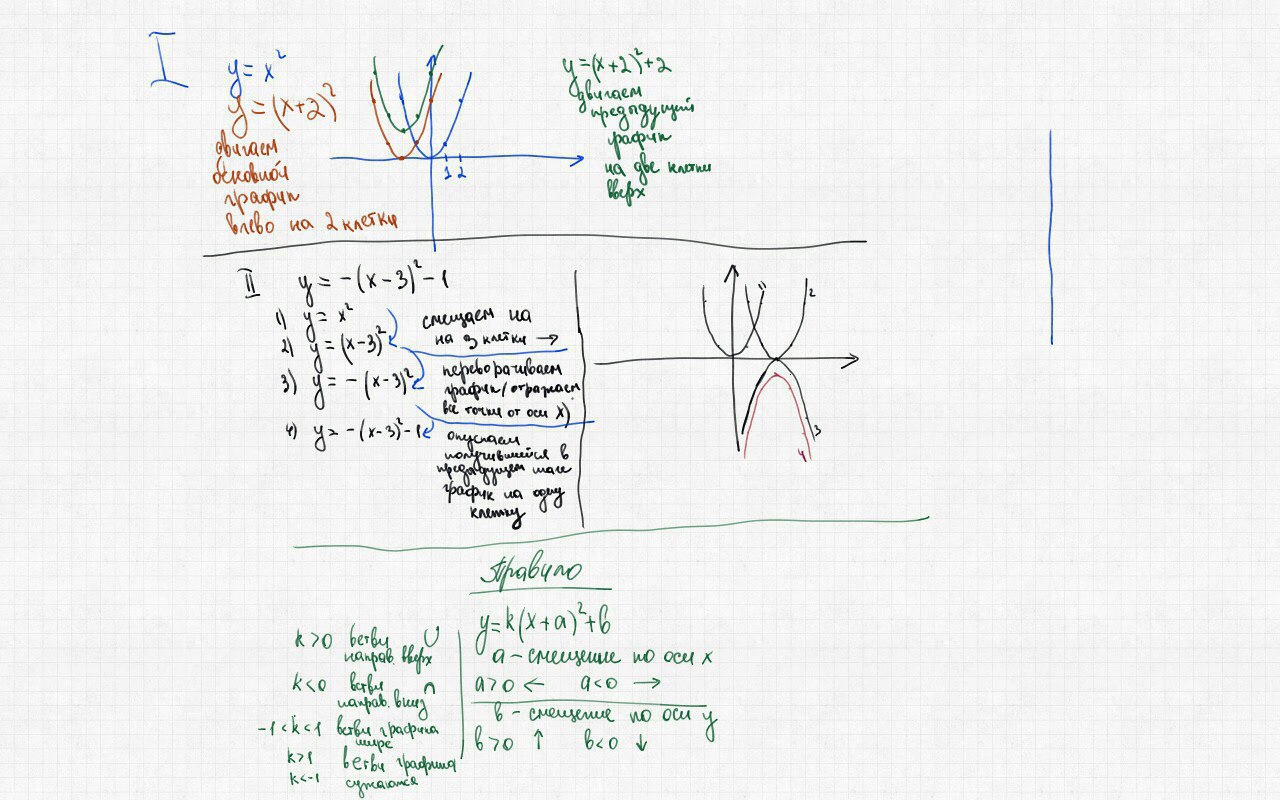 I
y = x²
y = (x+2)²
двигаем
основной
график
влево на 2 клетки
1 2
y = (x+2)²+2
двигаем
предыдущий
график
на две клетки
вверх
II y = -(x-3)²-1
1) y = x²
2) y = (x-3)²
3) y = -(x-3)²
4) y = -(x-3)²-1
смещаем на
на 3 клетки →
переворачиваем
график/отражаем
все точки от оси X)
опускаем
получившейся в
предыдущем шаге
график на одну
клетку
1 2
3
4
Правило
y = k(x+a)²+b
a - смещение по оси x
a>0 ← a<0 →
b - смещение по оси y
b>0 ↑ b<0 ↓
k>0 ветви ∪
направ. вверх
k<0 ветви ∩
направ. вниз
-1<k<1 ветви графика
шире
k>1 ветви графика
k<-1 сужаются